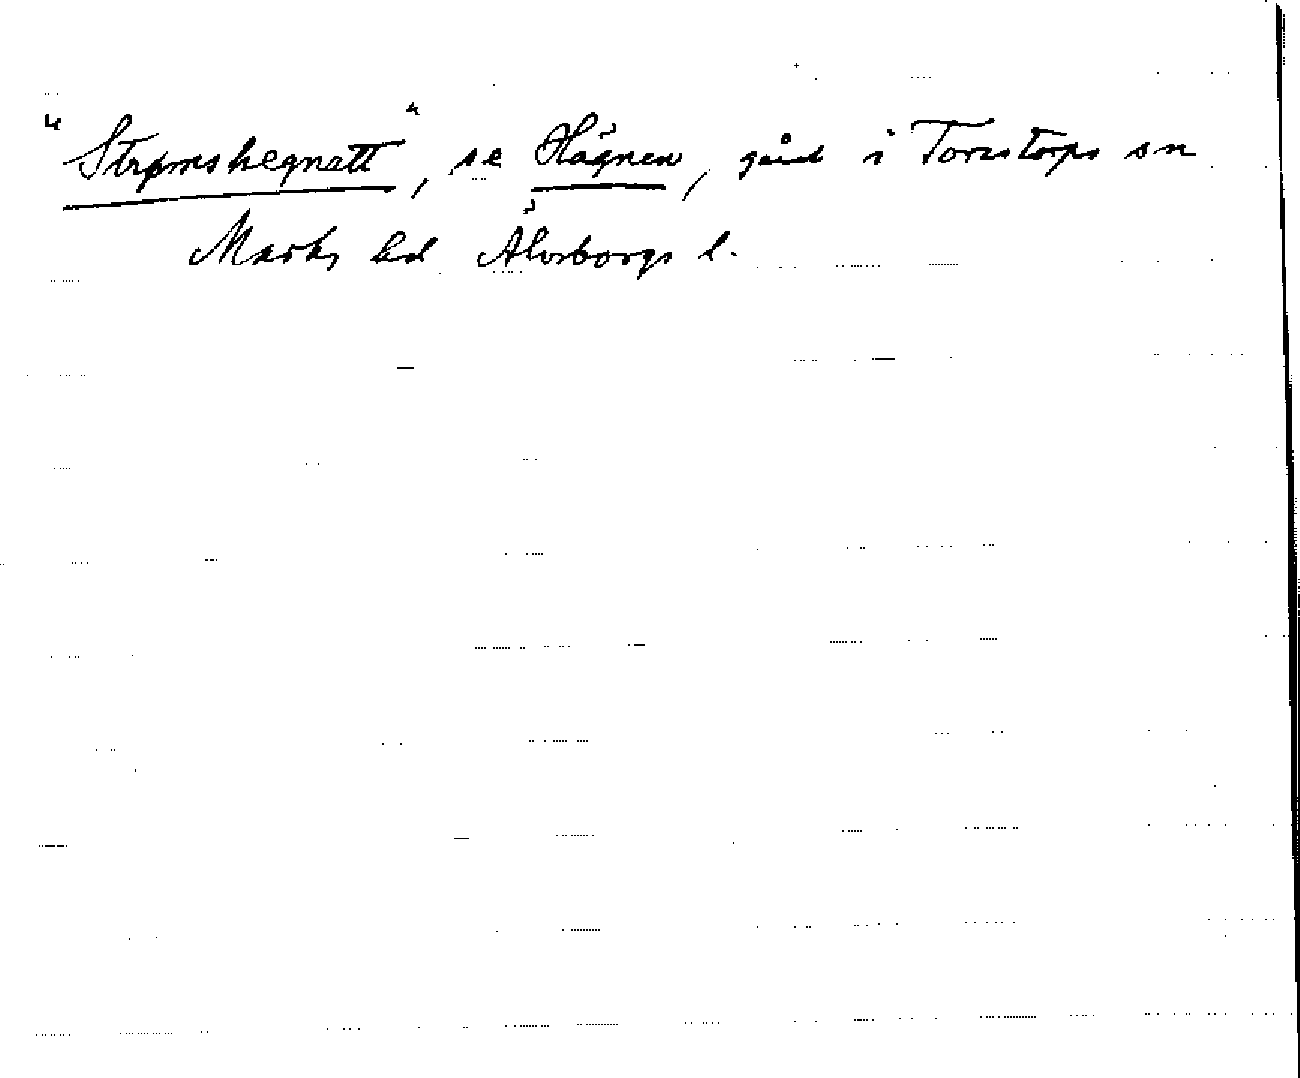 "Strømshegnatt", se Hägnen, gård i Torestorps sn
Marks hd Älvsborgs l.